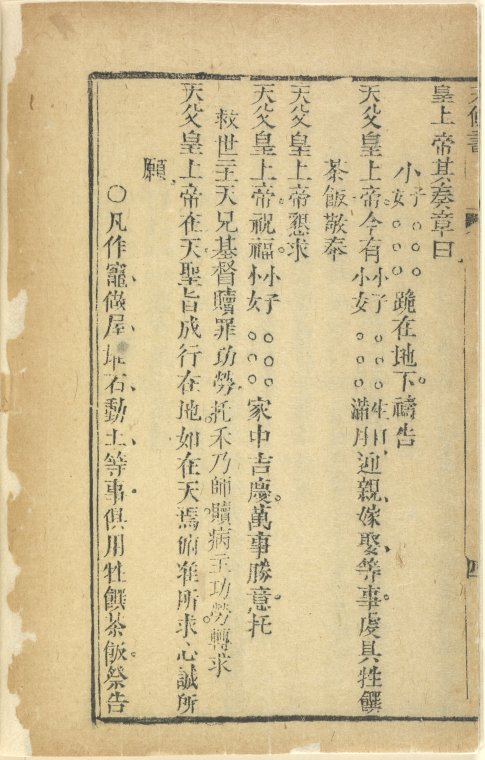 皇上帝其奏章曰
小子女○○○跪在地下。禱告
天父皇上帝。今有小子小女○○○生日、滿月、迎親、嫁娶等事。虔具牲饌
茶飯敬奉
天父皇上帝懇求
天父皇上帝。祝福小子小女○○○家中吉慶。萬事勝意。托
救世主天兄基督贖罪功勞。托禾乃師贖病主功勞。轉求
天父皇上帝在天聖旨成行。在地如在天焉。俯准所求。心誠所
願
○凡作竈、做屋、堆石、動土等事。俱用牲饌茶飯。祭告